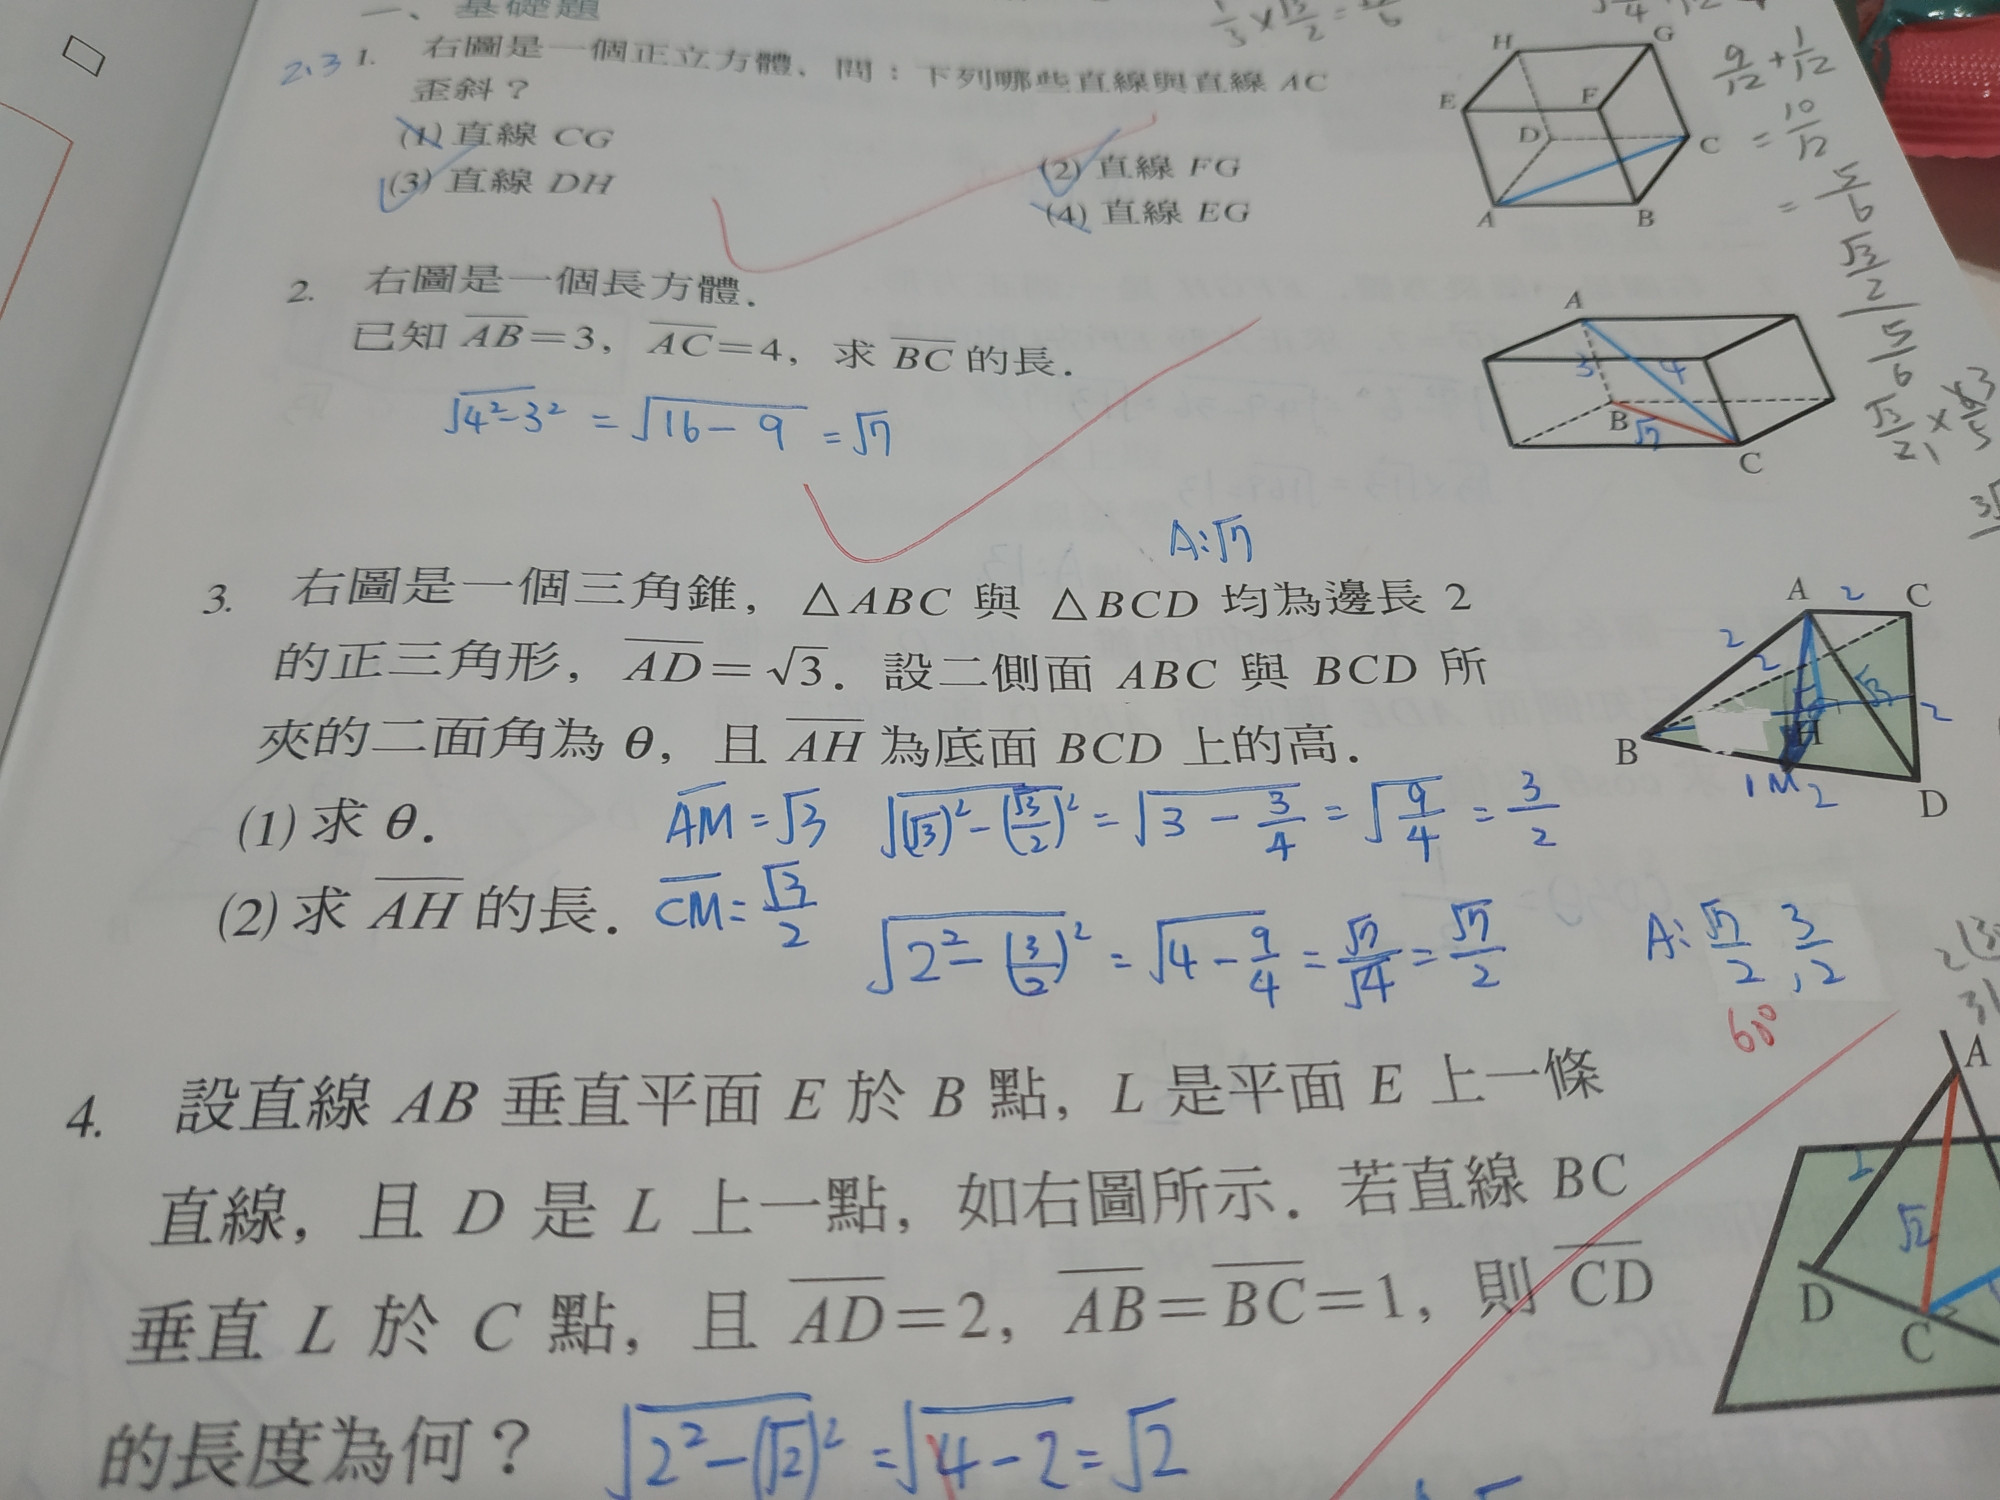 一、基礎題
2、3 1. 右圖是一個正立方體、問：下列哪些直線與直線 AC
歪斜？
(1) 直線 CG
(2) 直線 FG
(3) 直線 DH
(4) 直線 EG
H
G
E
F
D
C
A
B
9/12 + 1/12
= 10/12
= 5/6
2. 右圖是一個長方體．
已知 AB=3，AC=4，求 BC 的長．
√4²-3² = √16-9 = √7
A:√7
A
3
4
B
√7
C
3. 右圖是一個三角錐，△ABC 與 △BCD 均為邊長 2
的正三角形，AD=√3．設二側面 ABC 與 BCD 所
夾的二面角為 θ，且 AH 為底面 BCD 上的高．
(1) 求 θ．
AM = √3 √(√3)²-(√3/2)² = √3-3/4 = √9/4 = 3/2
(2) 求 AH 的長．
CM = √3/2
√2²-(3/2)² = √4-9/4 = √7/√4 = √7/2
A: √7/2 , 3/2
60°
A 2 C
2
2
√3
2
H
B
1 M 2
D
4. 設直線 AB 垂直平面 E 於 B 點，L 是平面 E 上一條
直線，且 D 是 L 上一點，如右圖所示．若直線 BC
垂直 L 於 C 點，且 AD=2，AB=BC=1，則 CD
的長度為何？
√2²-(√2)² = √4-2 = √2
A
√2
D
C